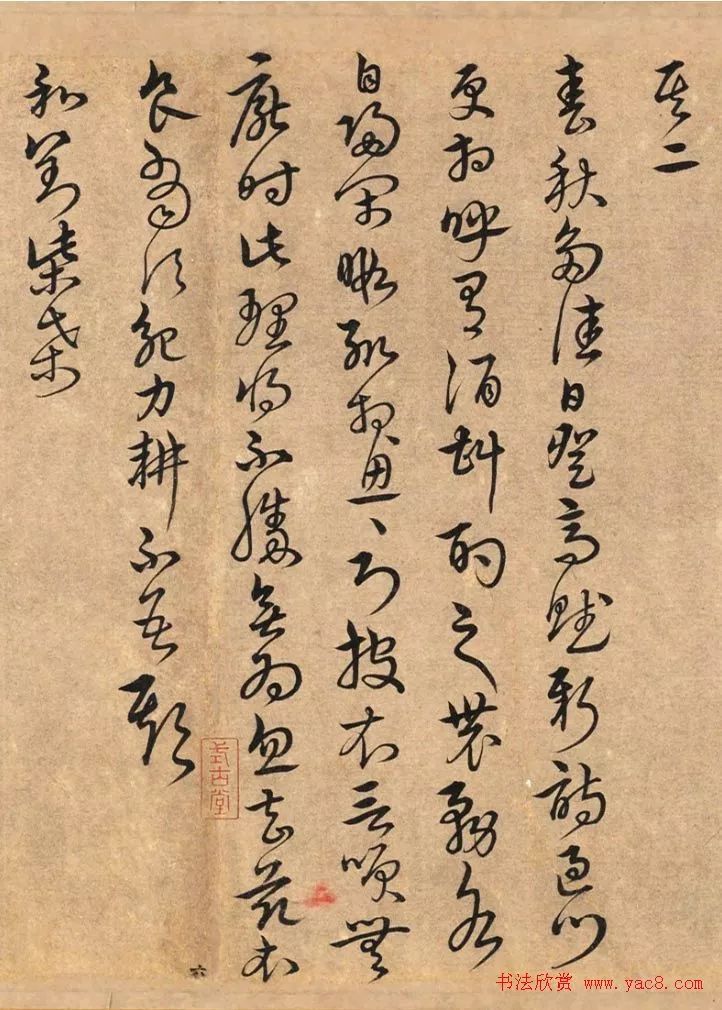 其二
春秋多佳日登高賦新詩過門
更相呼有酒斟酌之農務各
自歸閑暇輒相思〻則披衣言笑無
厭時此理將不勝無為忽去茲衣
食當須紀力耕不吾欺
式古堂
和劉柴桑
六
书法欣赏 www.yac8.com